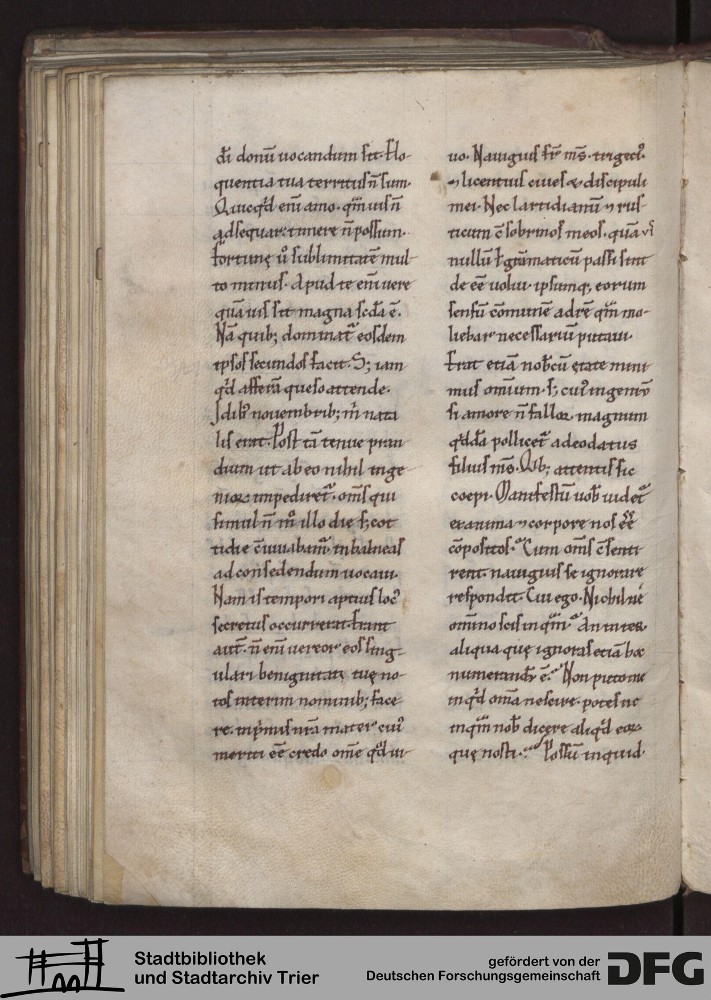 di donū uocandum sit. Elo-
quentia tua territus n̄ sum.
Quicq'd eni amo. qm̄ uis n̄
adsequar. timere n̄ possum.
fortunę u° sublimitatē mul-
to minus. Apud te eni uere
quāuis sit magna scda ē.
Nā quib; dominat' eosdem
ipsos secundos facit. S; iam
q'd afferā queso attende.
Idib' nouembrib; m̄ nata
lis erat. Post tā tenue pran
dium ut ab eo nihil inge
nior impediret'. oms qui
simul n̄ m° illo die s; cot
tidie cōuiuabam'. in balneas
ad consedendum uocaui.
Nam is tempori aptus loc'
secretus occurrerat. Erant
aut̄. n̄ eni uereor eos sing-
ulari benignitati tuę no-
tos interim nominib; face
re. inprimis nrā mater cui'
meriti eē credo ome q'd ui-
uo. Nauigius fr̄ ms. trigeti'.
⁊ licentius ciues & discipuli
mei. Nec lartidianū ⁊ rus-
ticum c̄sobrinos meos. quāuis
nullū l grāmaticū passi sint
de eē uolui. ipsumq; eorum
sensū comunē adrē qm̄ mo-
liebar necessariū putaui.
Erat etiā nobcū ętate mini
mus omium. s; cui' ingeniū
si amore n̄ fallor. magnum
q'ddā pollicet' adeodatus
filius ms. Qib; attentis sic
coepi. Manifestū uob uidet'
ex anima ⁊ corpore nos eē
cōpositos. Cum oms c̄senti
rent. nauigius se ignorare
respondit. Cui ego. Nichil ne
omnino scis inqm̄. An inter
aliqua quę ignoras etiā hoc
numerandū ē. Non puto me
inq'd omnia nescire. potes ne
inqm̄ nob dicere aliq'd eor
quę nosti. Possū inquid.
Stadtbibliothek
und Stadtarchiv Trier
gefördert von der
Deutschen Forschungsgemeinschaft
DFG